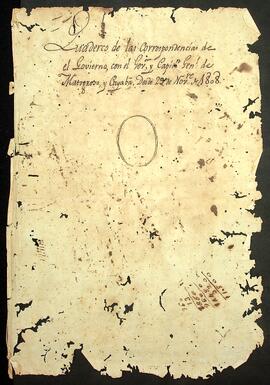 Quaderno de las Correspondencias de
el Govierno, con el Gov.r y Capit.n Gen.l de
Matogroso, y Cuyabá, Desde 22 de Nov.e de 1808.